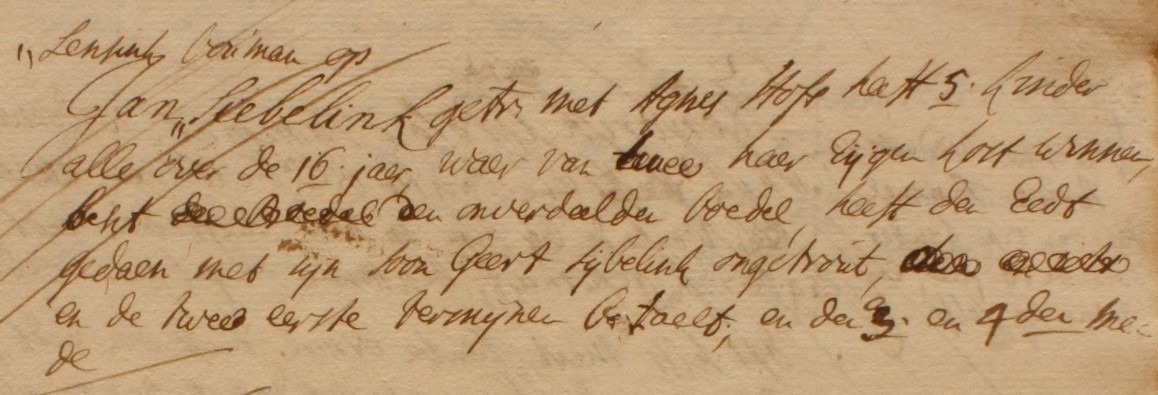 " Lensink bouman op
Jan " Seebelink getr. met Agnes Hoff heeft 5. kinder
alle over de 16. jaer waer van twee haer Eijgen kost winnen,
besit den onverdeelden boedel, heeft den Eedt
gedaen met sijn soon Geert sijbelink ongetrout,
en de twee eerste termijnen betaelt, en den 3. en 4 den me
de